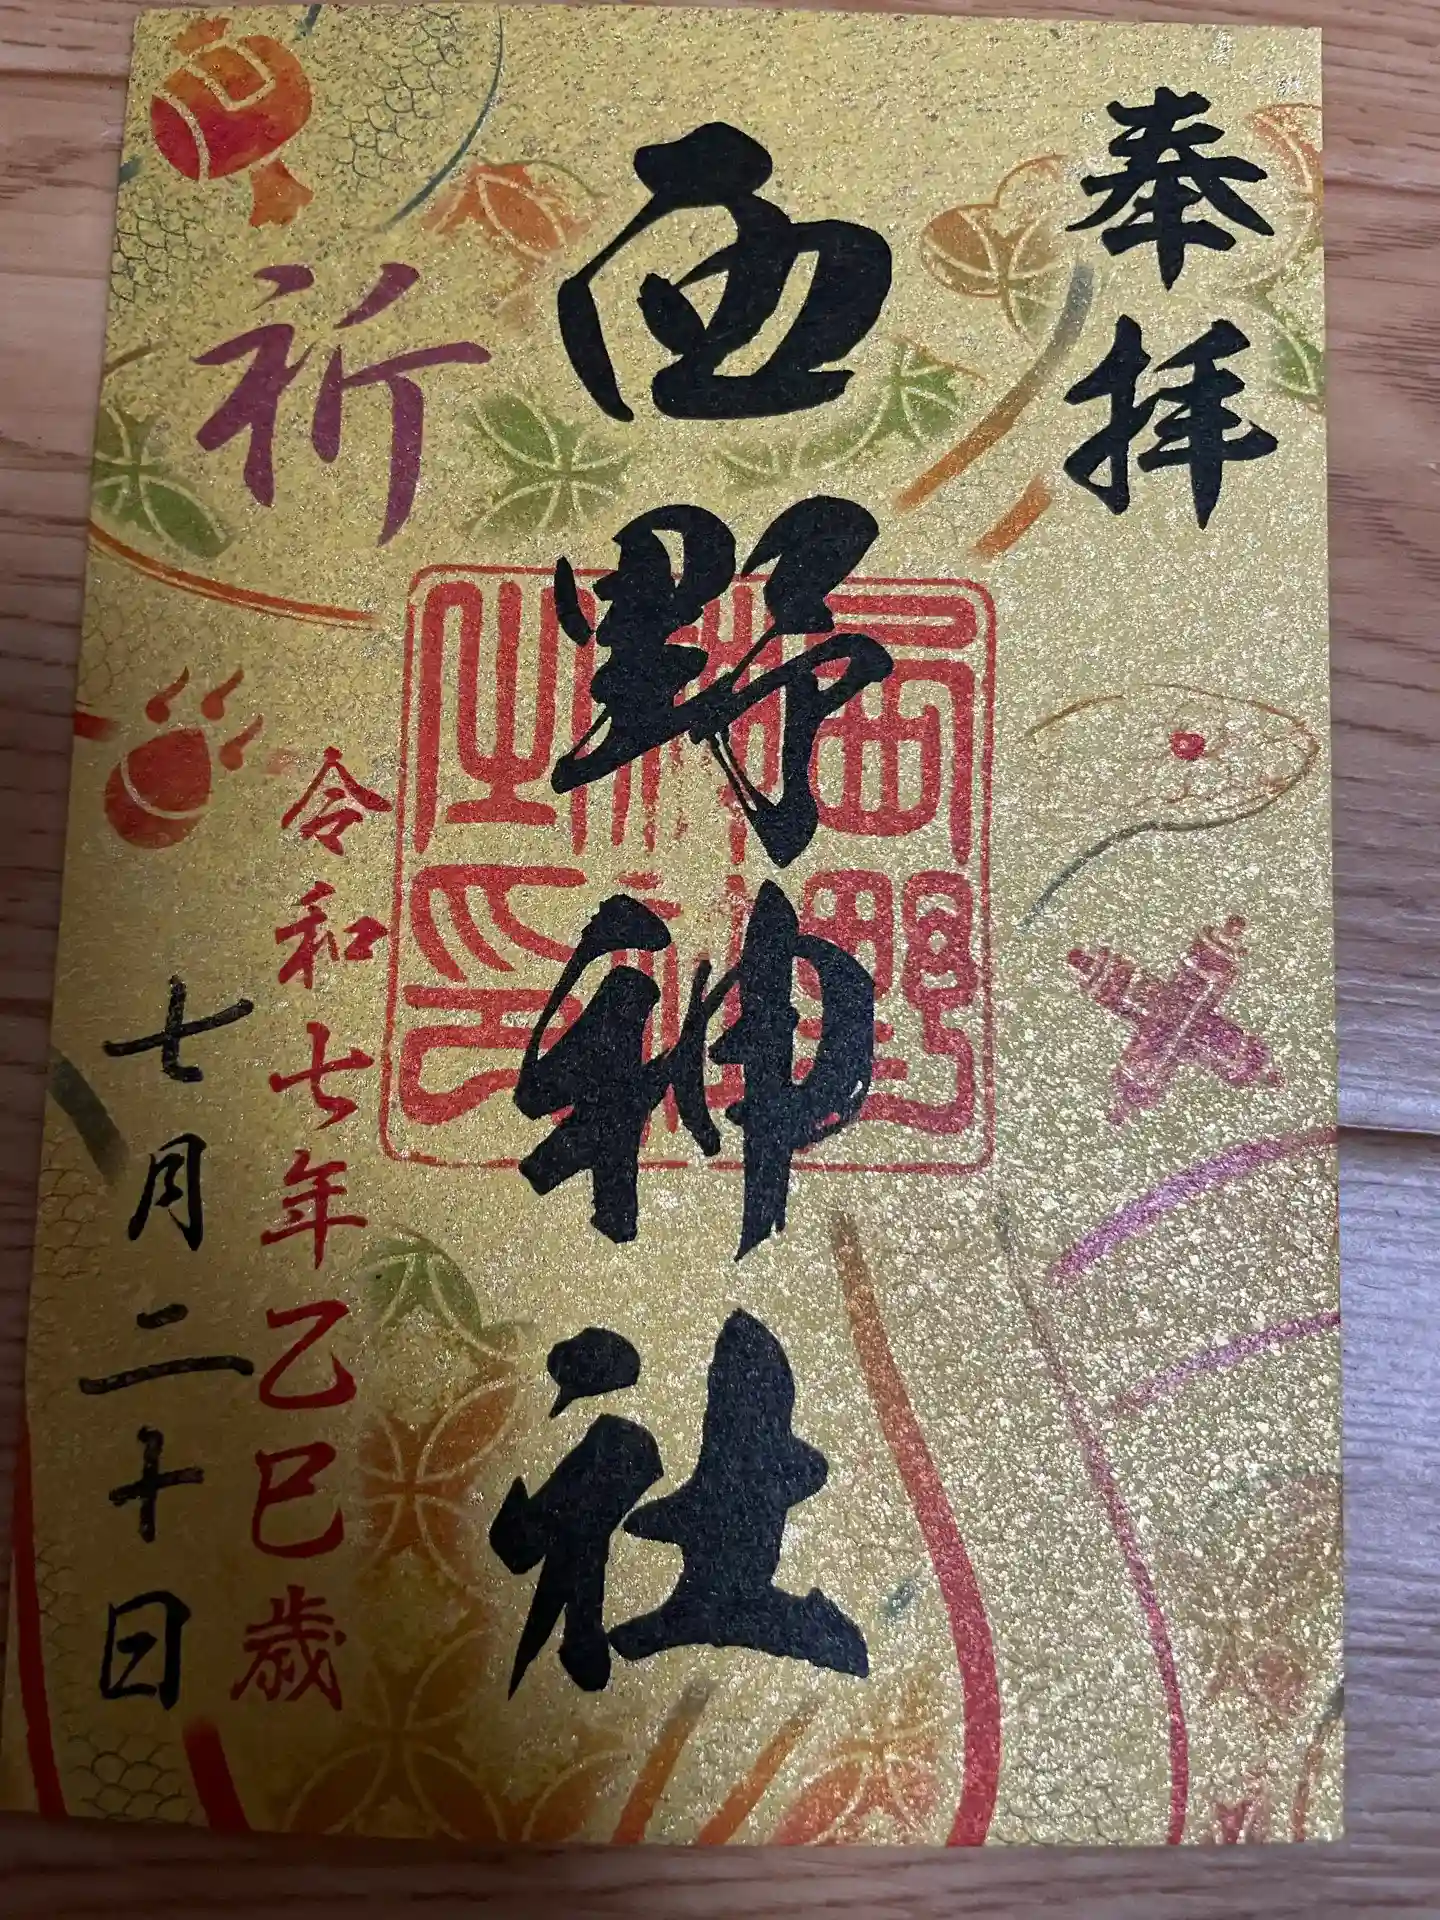 奉拝
西野神社
西野神社之印
祈
令和七年乙巳歳
七月二十日